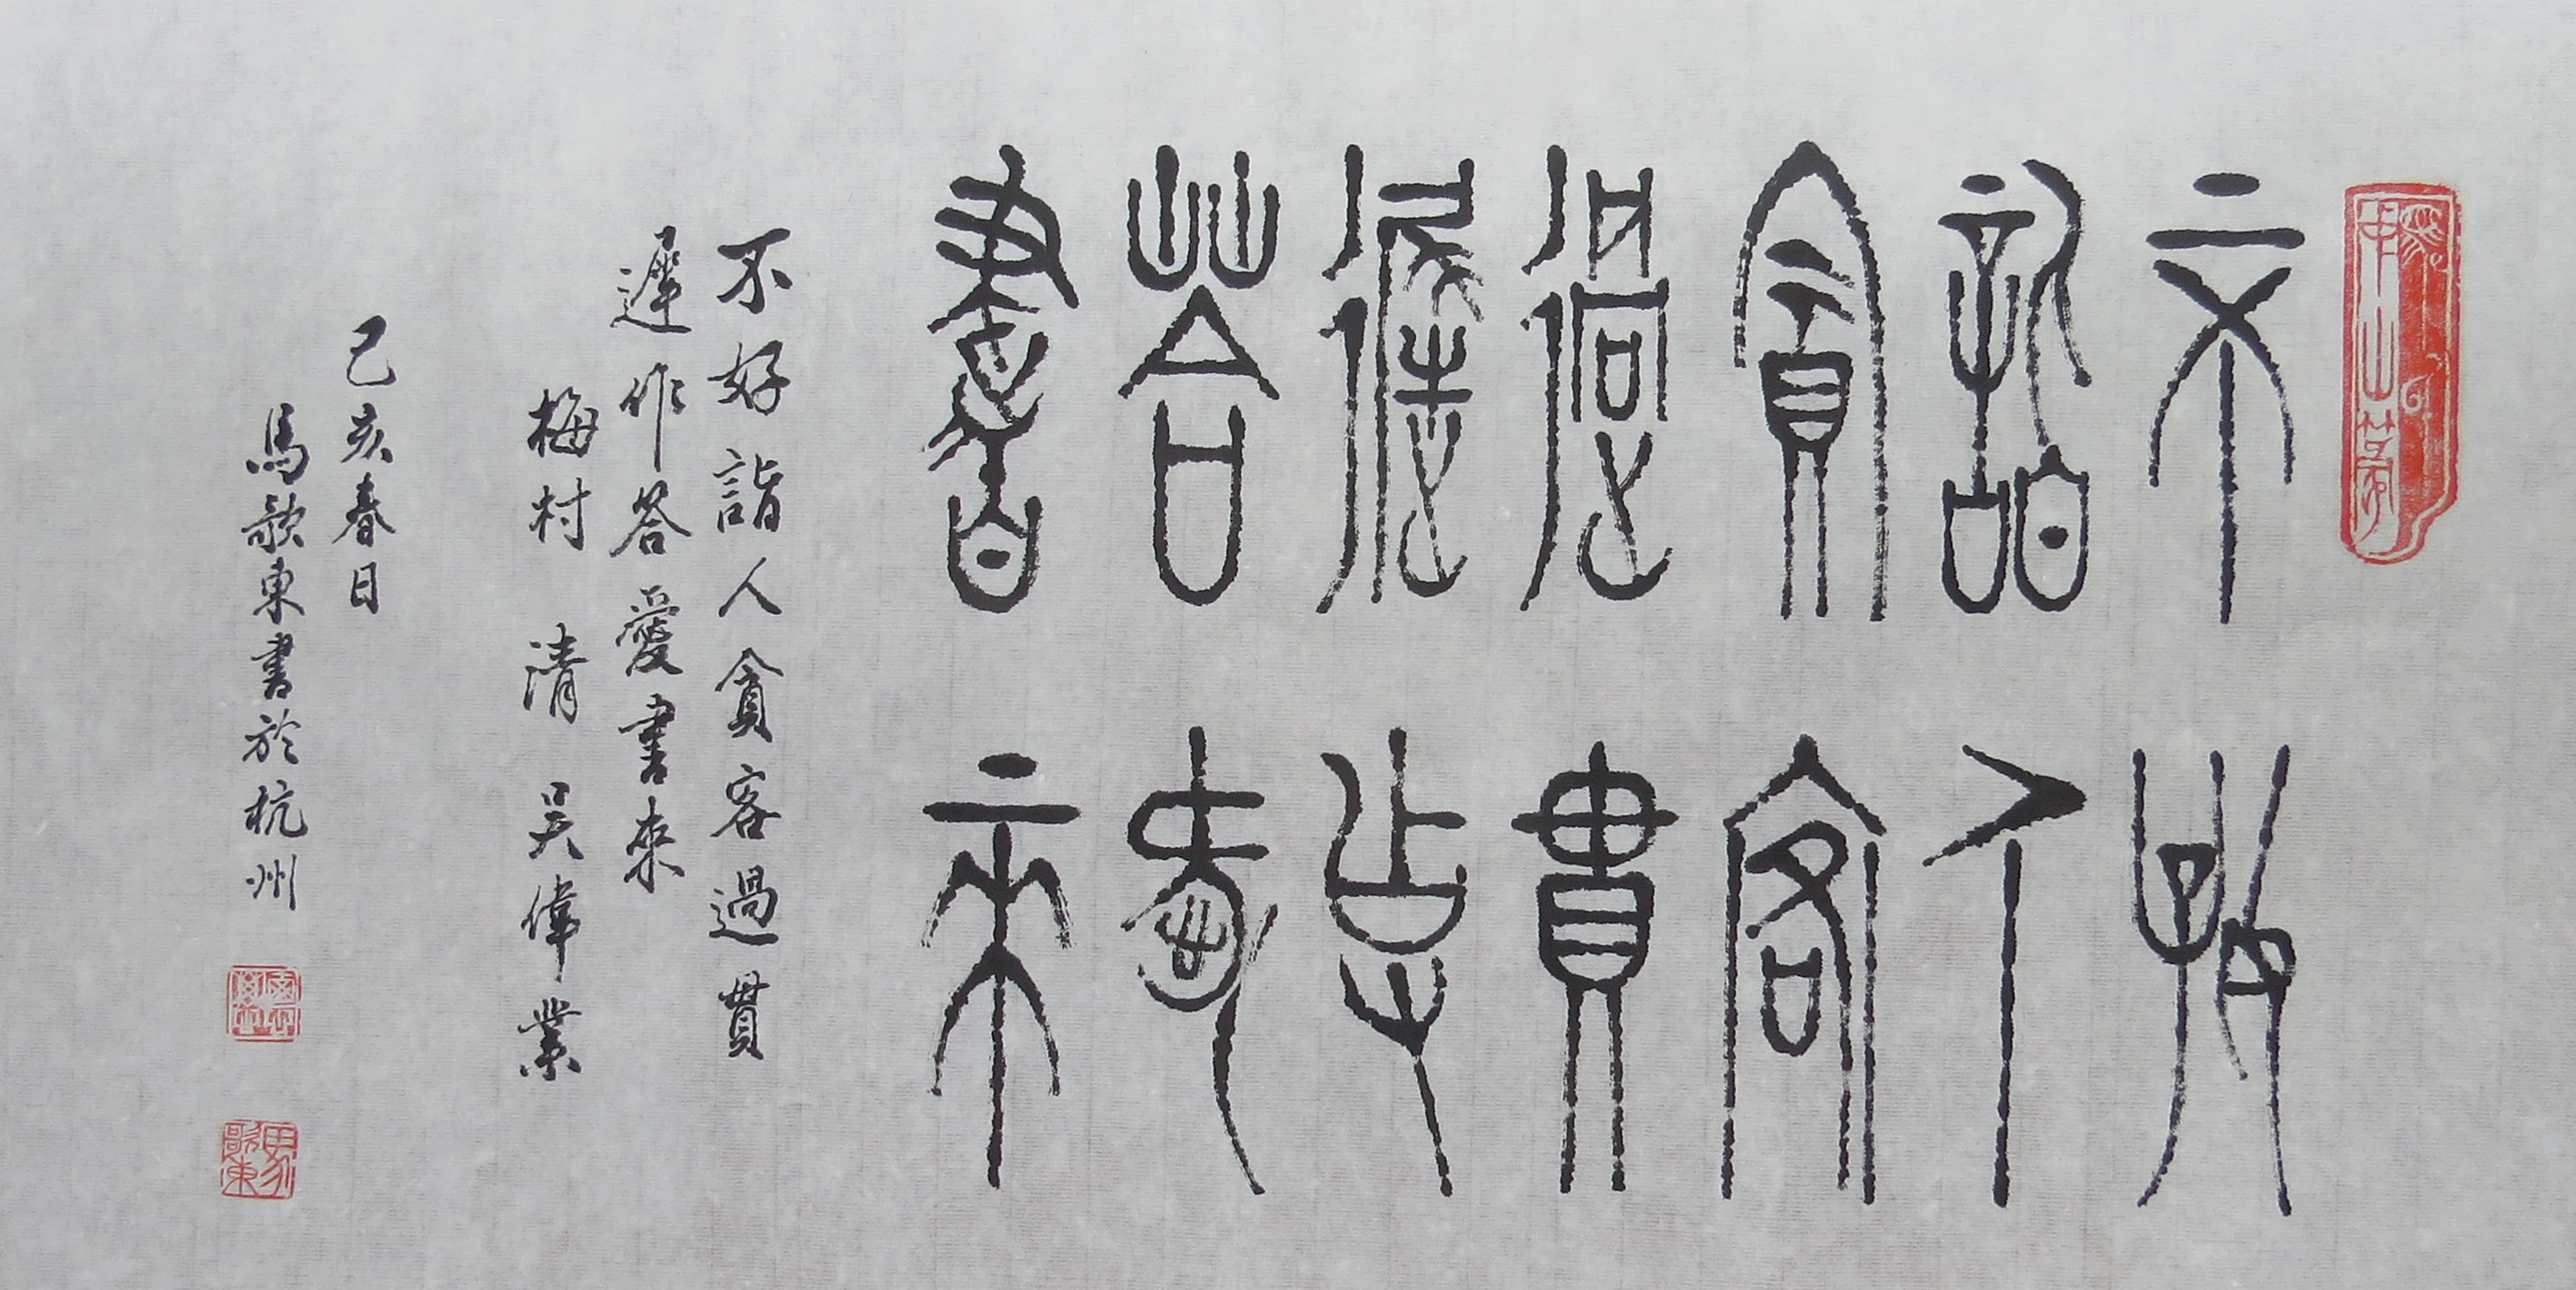 不好
詣人
貪客
過貫
遲作
答愛
書來
不好詣人貪客過貫
遲作答愛書來
梅村 清 吳偉業
己亥春日
馬歌東書於杭州
馬歌東